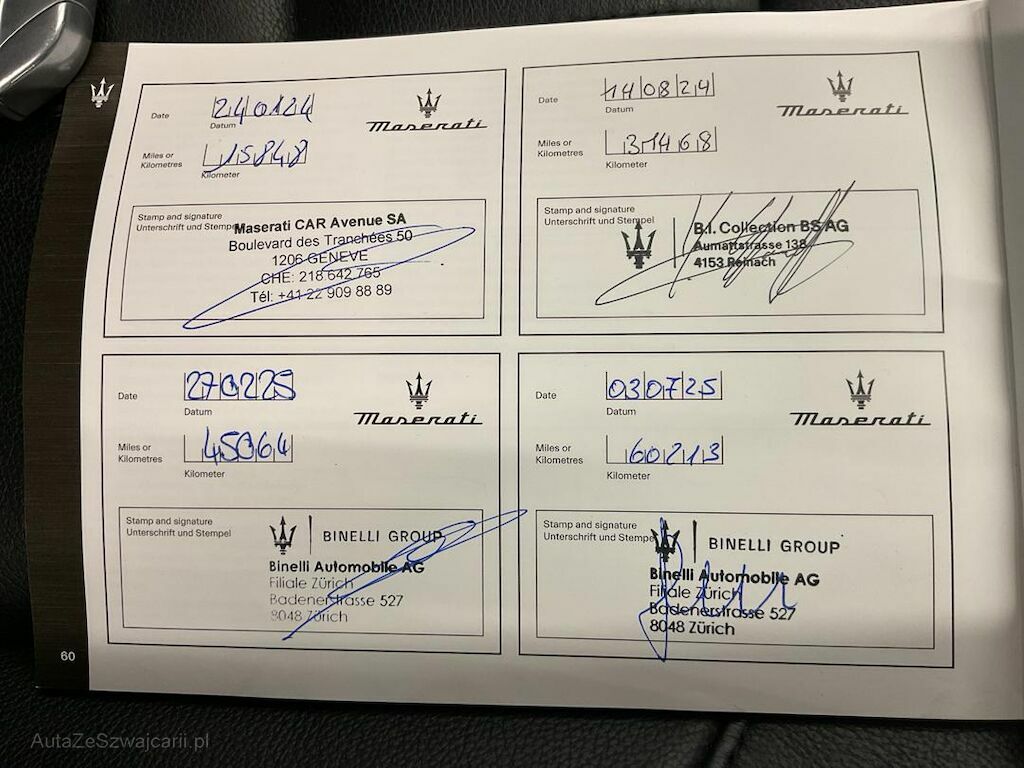 Date
240124
Datum
Maserati
Miles or
Kilometres
15848
Kilometer
Stamp and signature
Unterschrift und Stempel
Maserati CAR Avenue SA
Boulevard des Tranchées 50
1206 GENEVE
CHE: 218 642 765
Tél: +41 22 909 88 89
Date
14/08/24
Datum
Maserati
Miles or
Kilometres
31468
Kilometer
Stamp and signature
Unterschrift und Stempel
B.I. Collection BS AG
Aumattstrasse 138
4153 Reinach
Date
270225
Datum
Maserati
Miles or
Kilometres
45064
Kilometer
Stamp and signature
Unterschrift und Stempel
BINELLI GROUP
Binelli Automobile AG
Filiale Zürich
Badenerstrasse 527
8048 Zürich
Date
030725
Datum
Maserati
Miles or
Kilometres
60213
Kilometer
Stamp and signature
Unterschrift und Stempel
BINELLI GROUP
Binelli Automobile AG
Filiale Zürich
Badenerstrasse 527
8048 Zürich
60
AutaZeSzwajcarii.pl